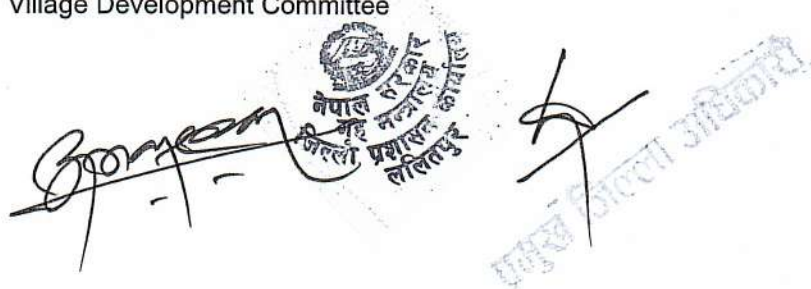 Village Development Committee
नेपाल सरकार
गृह मन्त्रालय
जिल्ला प्रशासन कार्यालय
ललितपुर
प्रमुख जिल्ला अधिकारी